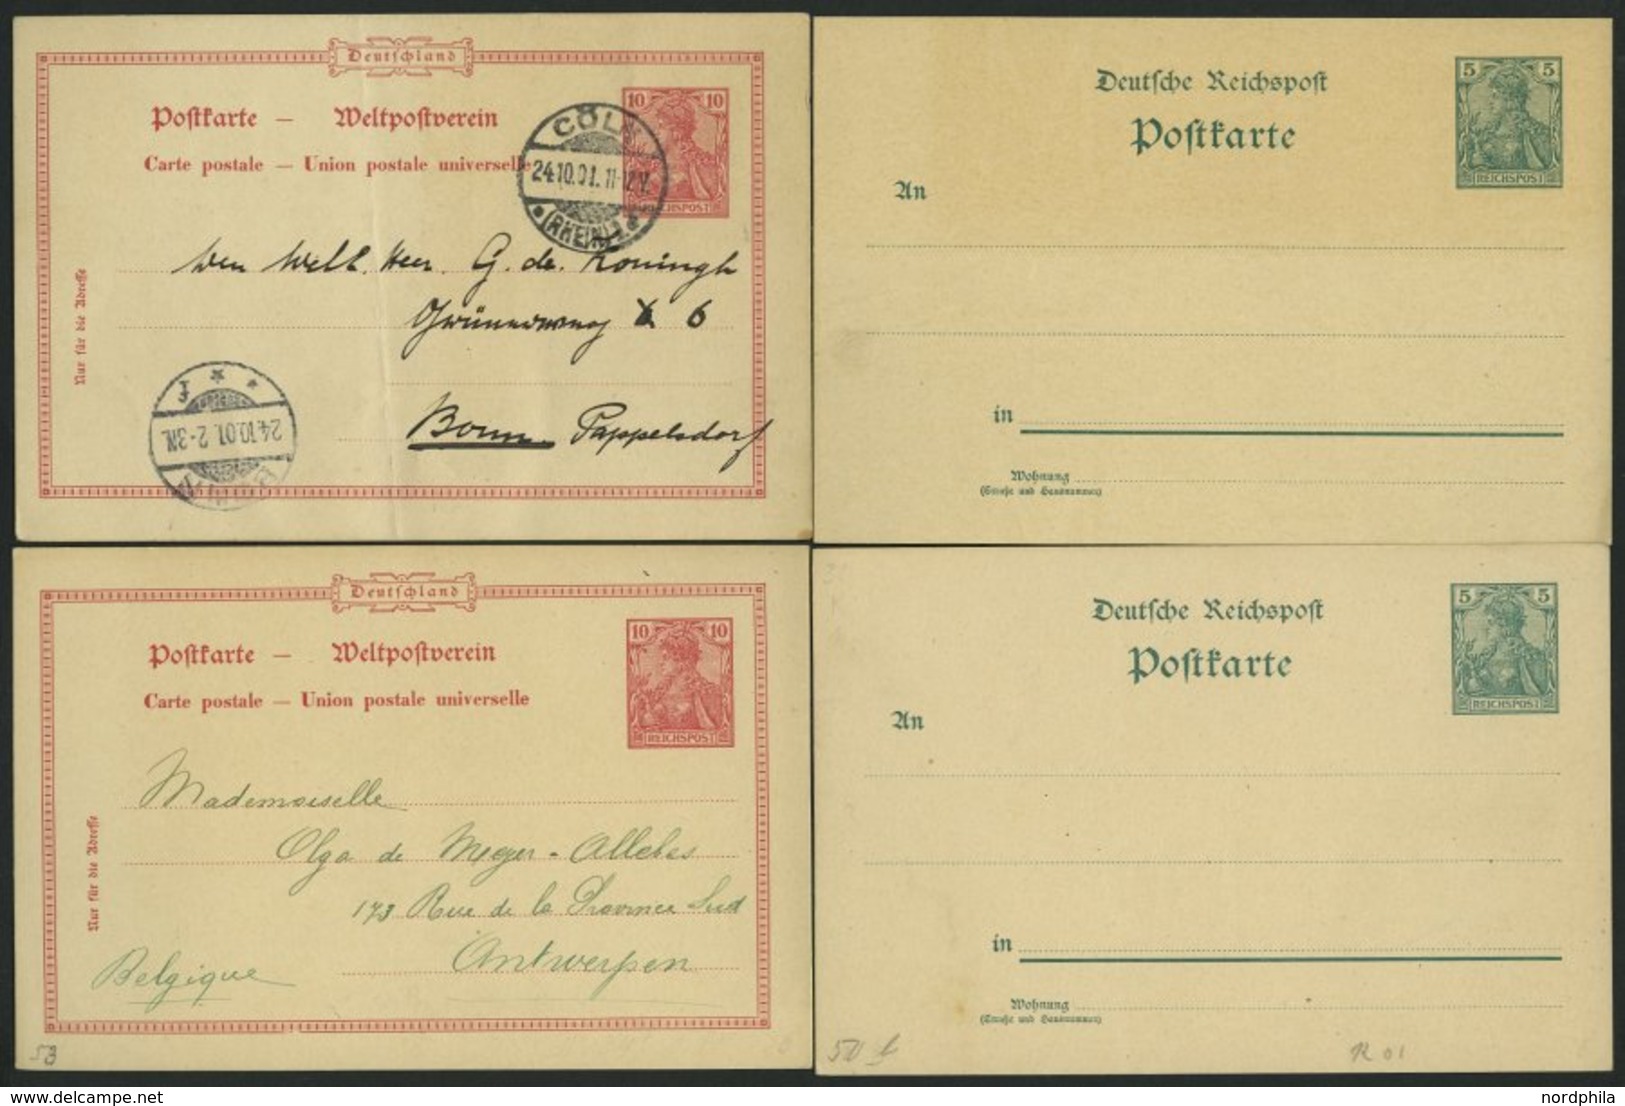 Deutschland
Postkarte — Weltpostverein
Carte postale — Union postale universelle
10 10
REICHSPOST
CÖLN
24.10.01. 11-12V.
(RHEIN) 1
Heer G. de Koningh
6
Bonn Poppelsdorf
Nur für die Adresse
24.10.01. 2-3N.
Deutsche Reichspost
Postkarte
5 5
REICHSPOST
An
in
Wohnung
(Straße und Hausnummer)
Deutschland
Postkarte — Weltpostverein
Carte postale — Union postale universelle
10 10
REICHSPOST
Mademoiselle
Olga de Meyer-
173 Rue de la Province Sud
Antwerpen
Belgique
Nur für die Adresse
53
Deutsche Reichspost
Postkarte
5 5
REICHSPOST
An
in
Wohnung
(Straße und Hausnummer)
R 01
nordphila